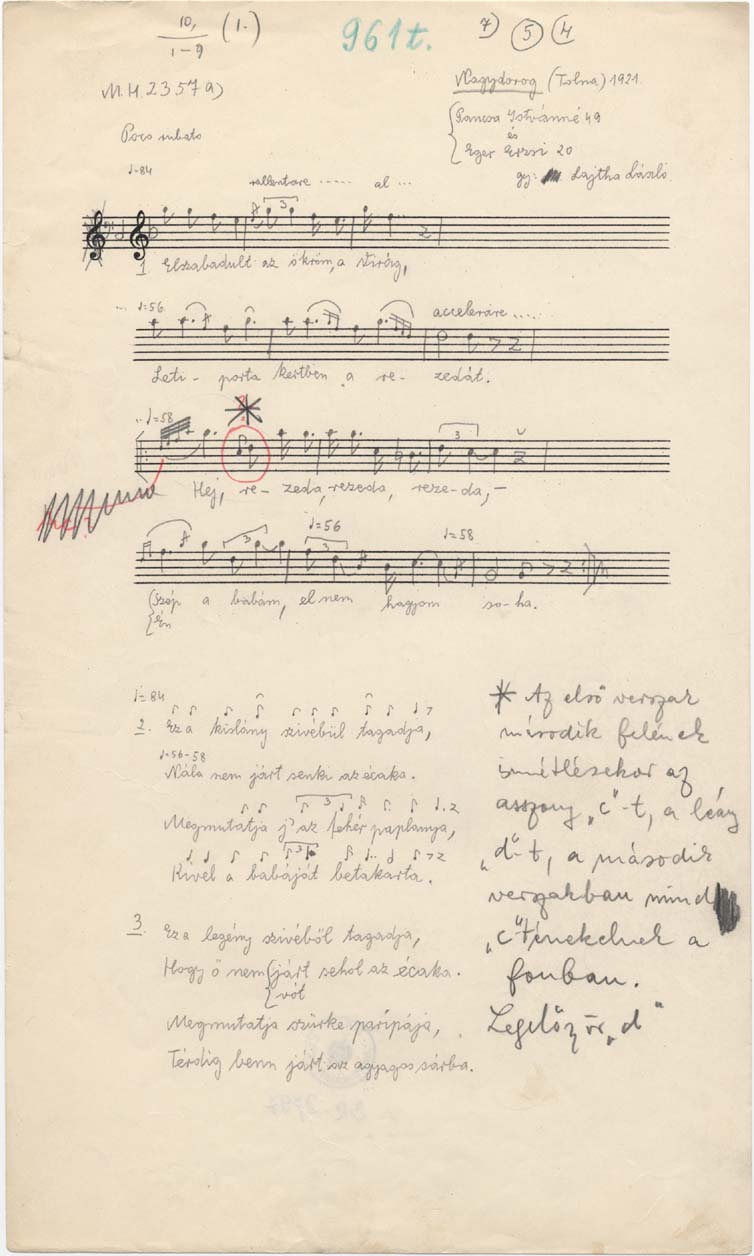 10, (1.)
1-9
961t.
7) 5 4
M.H. 2357a)
Nagydorog (Tolna) 1921.
Pancsa Istvánné 49
és
Eger Erzsi 20
gy: Lajtha László
Poco rubato
♩=84
rallentare ----- al ...
1 Elszabadult az ökröm, a Virág,
... ♩=56
accelerare .....
Leti - porta kertben a re - zedát.
.. ♩=58
*
Hej, re - zeda, rezeda, reze-da, -
♩=56
♩=58
Szép a babám, el nem hagyom so-ha.
Én
♩=84
2. Ez a kislány szivébül tagadja,
♩=56-58
Nála nem járt senki az écaka.
Megmutatja j' az fehér paplanya,
Kivel a babáját betakarta.
3. Ez a legény szivéből tagadja,
Hogy ő nem járt sehol az écaka.
vót
Megmutatja szürke paripája,
Térdig benn járt az agyagos sárba.
* Az első verszak
második felének
ismétlésekor az
asszony „c"-t, a leány
„d"-t, a második
verszakban mind
„c"-t énekelnek a
fonban.
Legelőször „d"